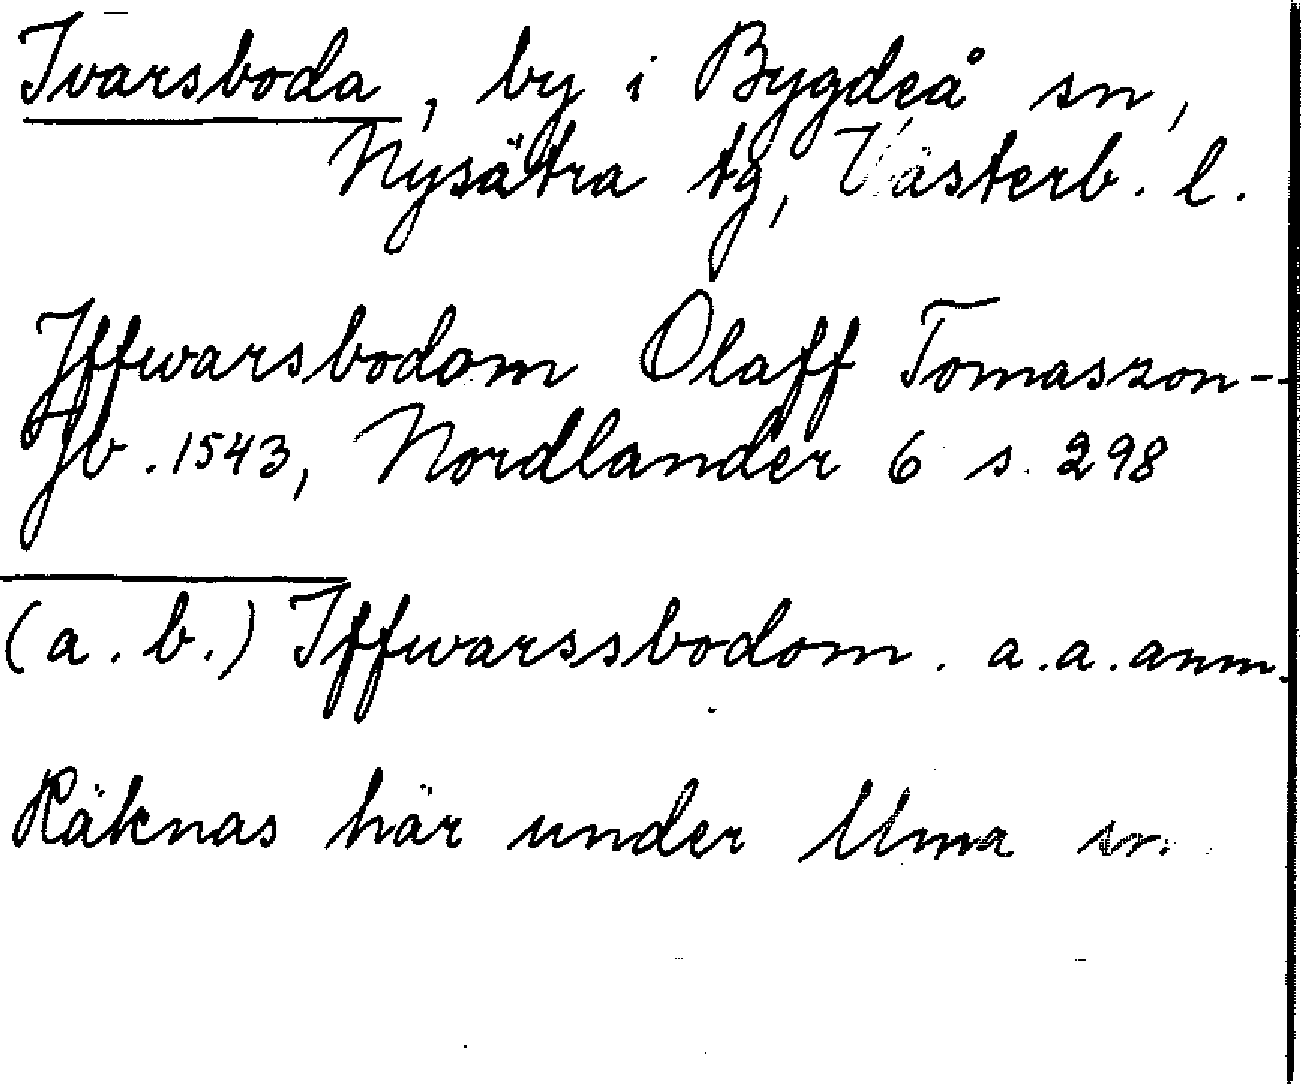 Ivarsboda, by i Bygdeå sn,
Nysätra tg, Västerb. l.
Jffwarsbodom Olaff Tomaszon--
Jb. 1543, Nordlander 6 s. 298
(a. b.) Iffwarssbodom. a.a.anm.
Räknas här under Uma sn.